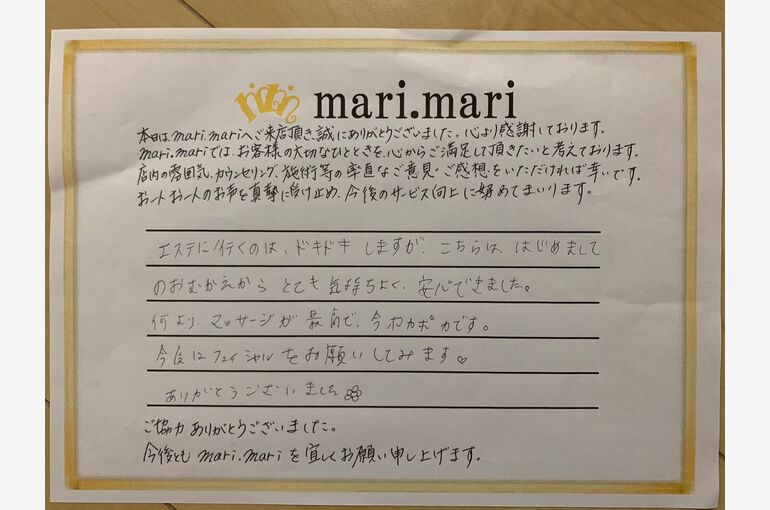 mari
mari.mari
本日は、mari.mariへご来店頂き、誠にありがとうございました。心より感謝しております。
mari.mariでは、お客様の大切なひとときを、心からご満足して頂きたいと考えております。
店内の雰囲気、カウンセリング、施術等の率直なご意見・ご感想をいただければ幸いです。
お一人お一人のお声を真摯に受け止め、今後のサービス向上に努めてまいります。
エステに行くのは、ドキドキしますが、こちらは、はじめまして
のおむかえから とても 気持ちよく、安心できました。
何より、マッサージが 最高で、今ポカポカです。
今度はフェイシャルをお願いしてみます♡
ありがとうございました
ご協力ありがとうございました。
今後とも mari.mariを宜しくお願い申し上げます。